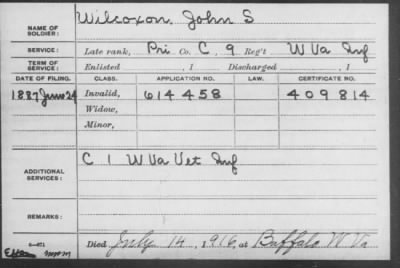 NAME OF SOLDIER: Wilcoxon, John S
SERVICE: Late rank, Pri Co. C, 9 Reg't W Va Inf
TERM OF SERVICE: Enlisted , 1 Discharged , 1
DATE OF FILING. CLASS. APPLICATION NO. LAW. CERTIFICATE NO.
1887 June 24 Invalid, 614458 409814
Widow,
Minor,
ADDITIONAL SERVICES: C 1 W Va Vet Inf
REMARKS:
Died July 14, 1916, at Buffalo W Va